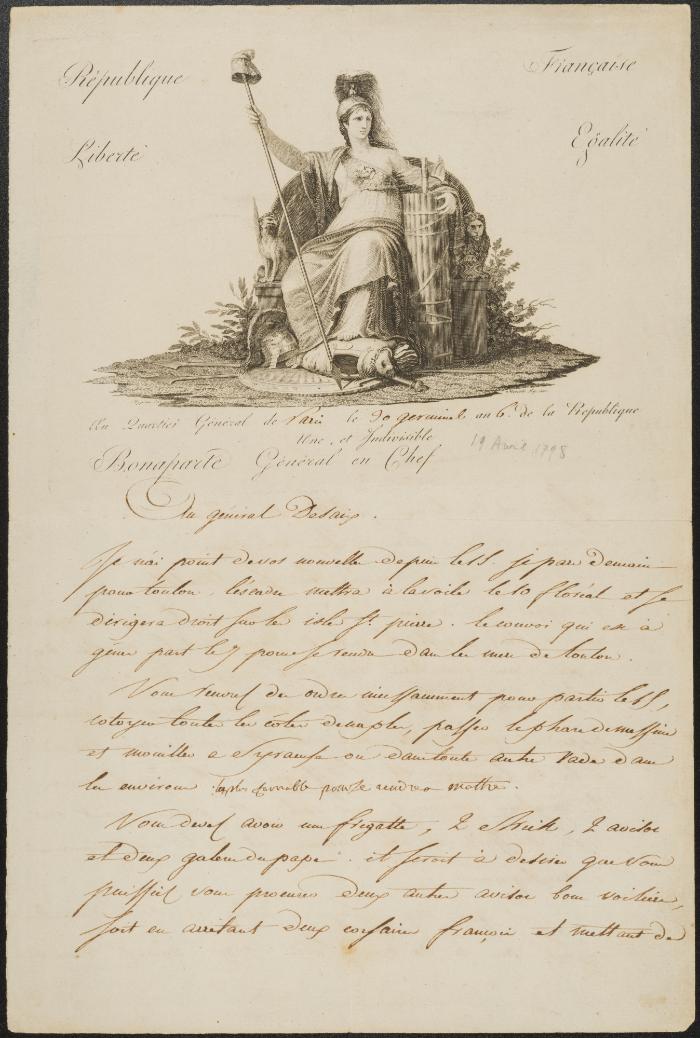 République Française
Liberté Egalité
Au Quartier Général de Paris le 30 germinal an 6.e de la République
Une, et Indivisible.
19 Avril 1798
Bonaparte Général en Chef
Au général Desaix.
Je n'ai point de vos nouvelle depuis le 15. je pars demain
pour toulon. l'escadre mettra à la voile le 10 floréal et se
dirigera droit sur les isle St. pierre. le convoi qui est à
gènes part le 7 pour se rendre dans les mers de toulon.
Vous recevrez des ordre incessamment pour partir le 15,
cotoyer toutes les côtes de naples, passer le phare de messine
et mouiller a Syracuse ou dans toute autre rade dans
les environs la plus favorable pour se rendre a malthe.
Vous devez avoir une frigatte, 2 , 2 avisos
et deux galeres du pape. il seroit à desirer que vous
puissiez vous procurer deux autres avisos bons voiliers,
soit en arrêtant deux corsaires françois et mettant de